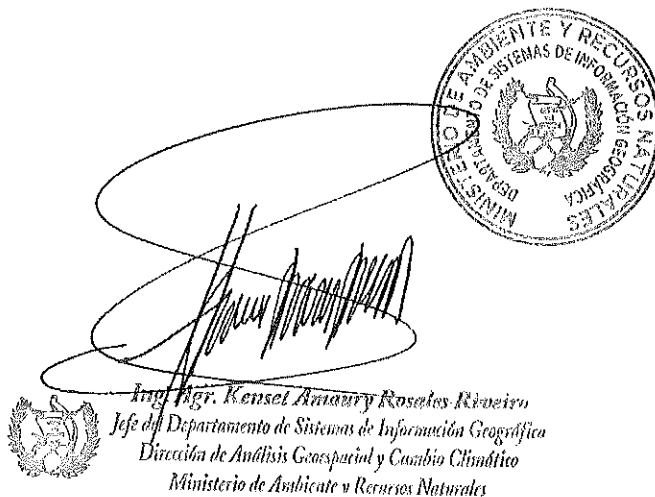 MINISTERIO DE AMBIENTE Y RECURSOS NATURALES
DEPARTAMENTO DE SISTEMAS DE INFORMACIÓN GEOGRÁFICA
Ing. Agr. Kenset Amaury Rosales Riveiro
Jefe del Departamento de Sistemas de Información Geográfica
Dirección de Análisis Geoespacial y Cambio Climático
Ministerio de Ambiente y Recursos Naturales